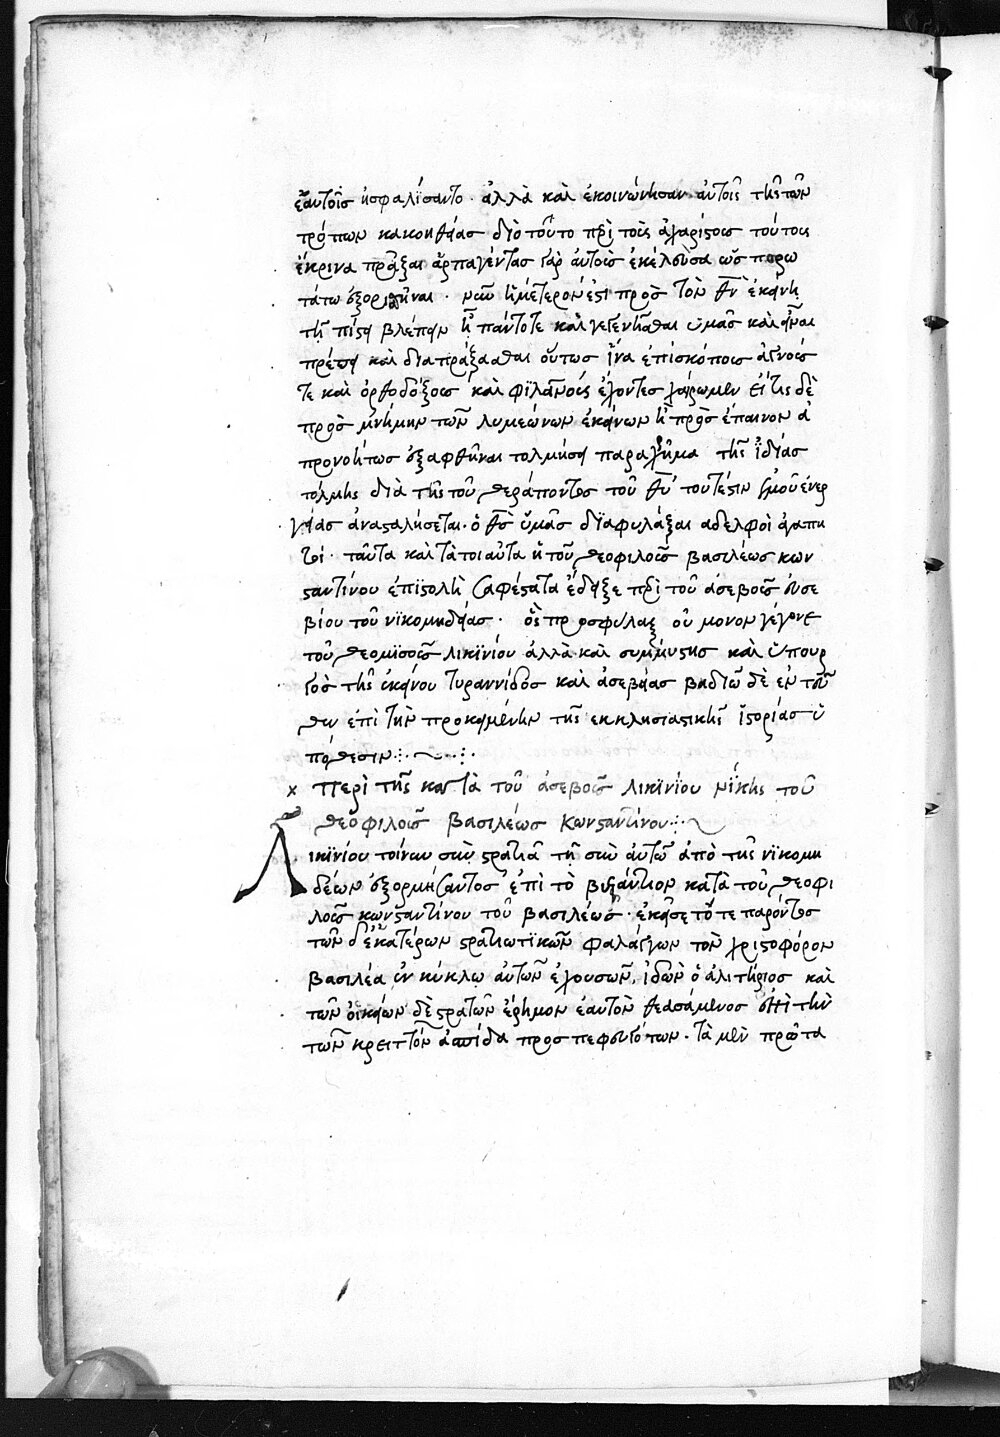 ἑαυτοῖς ἠσφαλίσαντο · ἀλλὰ καὶ ἐκοινώνησαν αὐτοῖς τῆς τῶν
τρόπων κακοηθείας διὸ τοῦτο περὶ τοὺς ἀχαρίστους τούτους
ἔκρινα πρᾶξαι ἁρπαγέντας γὰρ αὐτοὺς ἐκέλευσα ὡς πορρω
τάτω ἐξορισθῆναι · νῦν ἡμέτερον ἐστι πρὸς τὸν θν ἐκείνῃ
τῇ πίστει βλέπειν ᾗ πάντοτε καὶ γεγενῆσθαι ὑμᾶς καὶ εἶναι
πρέπει καὶ διαπράξασθαι οὕτως ἵνα ἐπισκόπους ἁγνούς
τε καὶ ὀρθοδόξους καὶ φιλανους ἔχοντες χαίρωμεν εἴ τις δὲ
πρὸς μνήμην τῶν λυμεώνων ἐκείνων ἢ πρὸς ἔπαινον ἀ
προνοήτως ἐξαφθῆναι τολμήσει παραχρῆμα τῆς ἰδίας
τόλμης διὰ τῆς τοῦ θεράποντος τοῦ θυ τουτέστιν ἐμοῦ ἐνερ
γείας ἀνασταλήσεται · ὁ θς ὑμᾶς διαφυλάξαι αδελφοὶ ἀγαπη
τοί · ταῦτα καὶ τὰ τοιαῦτα ἡ τοῦ θεοφιλοῦς βασιλέως κων
σταντίνου ἐπιστολὴ σαφέστατα ἔδειξε περὶ τοῦ ἀσεβοῦς εὐσε
βίου τοῦ νικομηδείας · ὃς προσφυλαξ οὐ μονον γέγονε
τοῦ θεομισοῦς λικινίου ἀλλὰ καὶ συμμύστης καὶ ὑπουρ
γὸς τῆς ἐκείνου τυραννίδος καὶ ἀσεβείας βαδιῶ δὲ ἐντεῦ
θεν ἐπὶ τὴν προκειμένην τῆς εκκλησιαστικῆς ἱστορίας ὑ
πόθεσιν
Περὶ τῆς κατὰ τοῦ ἀσεβοῦς λικινίου νίκης τοῦ
θεοφιλοῦς βασιλέως κωνσταντίνου
Λικινίου τοίνυν σὺν στρατιᾷ τῇ σὺν αὐτῷ ἀπὸ τῆς νικομη
δέων ἐξορμήσαντος ἐπὶ τὸ βυζάντιον κατὰ τοῦ θεοφι
λοῦς κωνσταντίνου τοῦ βασιλέως · ἐκεῖσε τότε παρόντος
τῶν δ ἑκατέρων στρατιωτικῶν φαλάγγων τὸν χριστοφόρον
βασιλέα ἐν κύκλῳ αὐτῶν ἐχουσῶν, ἰδὼν ὁ ἀλιτήριος καὶ
τῶν οἰκείων δὲ στρατῶν ἔρημον ἑαυτὸν θεασάμενος ἐπὶ τὴν
τῶν κρειττόνων ἀσπίδα προσπεφευγότων · τὰ μὲν πρῶτα